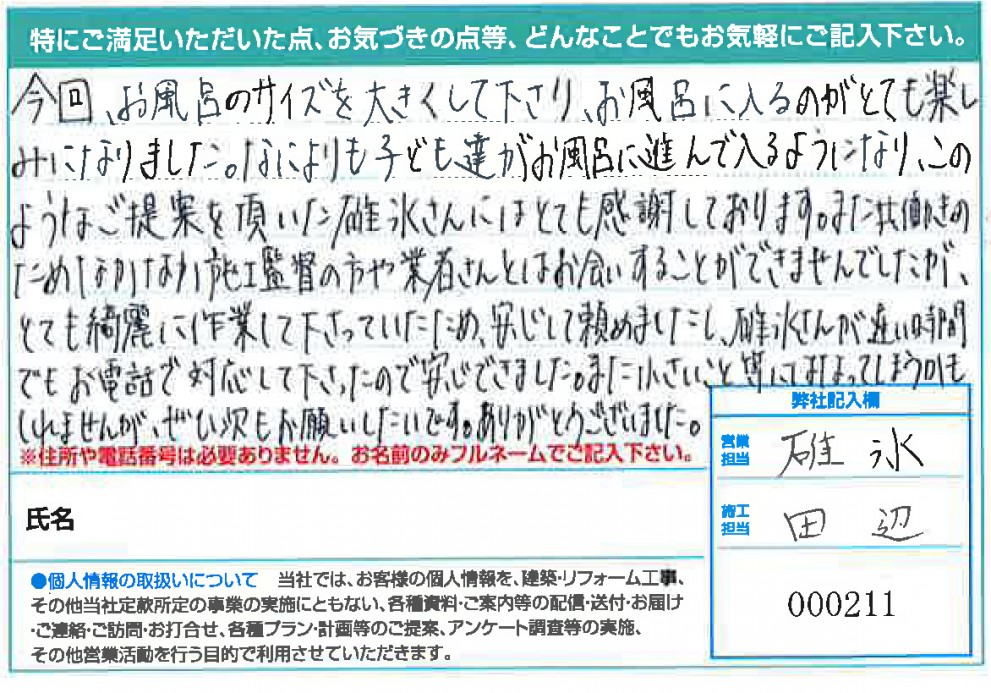 特にご満足いただいた点、お気づきの点等、どんなことでもお気軽にご記入下さい。
今回、お風呂のサイズを大きくして下さり、お風呂に入るのがとても楽し
みになりました。なによりも子ども達がお風呂に進んで入るようになり、この
ようなご提案を頂いた碓氷さんにはとても感謝しております。また共働きの
ためなかなか施工監督の方や業者さんとはお会いすることができませんでしたが、
とても綺麗に作業して下さっていたため、安心して頼めましたし、碓氷さんが遅い時間
でもお電話で対応して下さったので安心できました。また小さいこと等になってしまうかも
しれませんが、ぜひ次もお願いしたいです。ありがとうございました。
※住所や電話番号は必要ありません。お名前のみフルネームでご記入下さい。
弊社記入欄
営業担当 碓氷
氏名
施工担当 田辺
000211
●個人情報の取扱いについて 当社では、お客様の個人情報を、建築・リフォーム工事、
その他当社定款所定の事業の実施にともない、各種資料・ご案内等の配信・送付・お届け
・ご連絡・ご訪問・お打合せ、各種プラン・計画等のご提案、アンケート調査等の実施、
その他営業活動を行う目的で利用させていただきます。